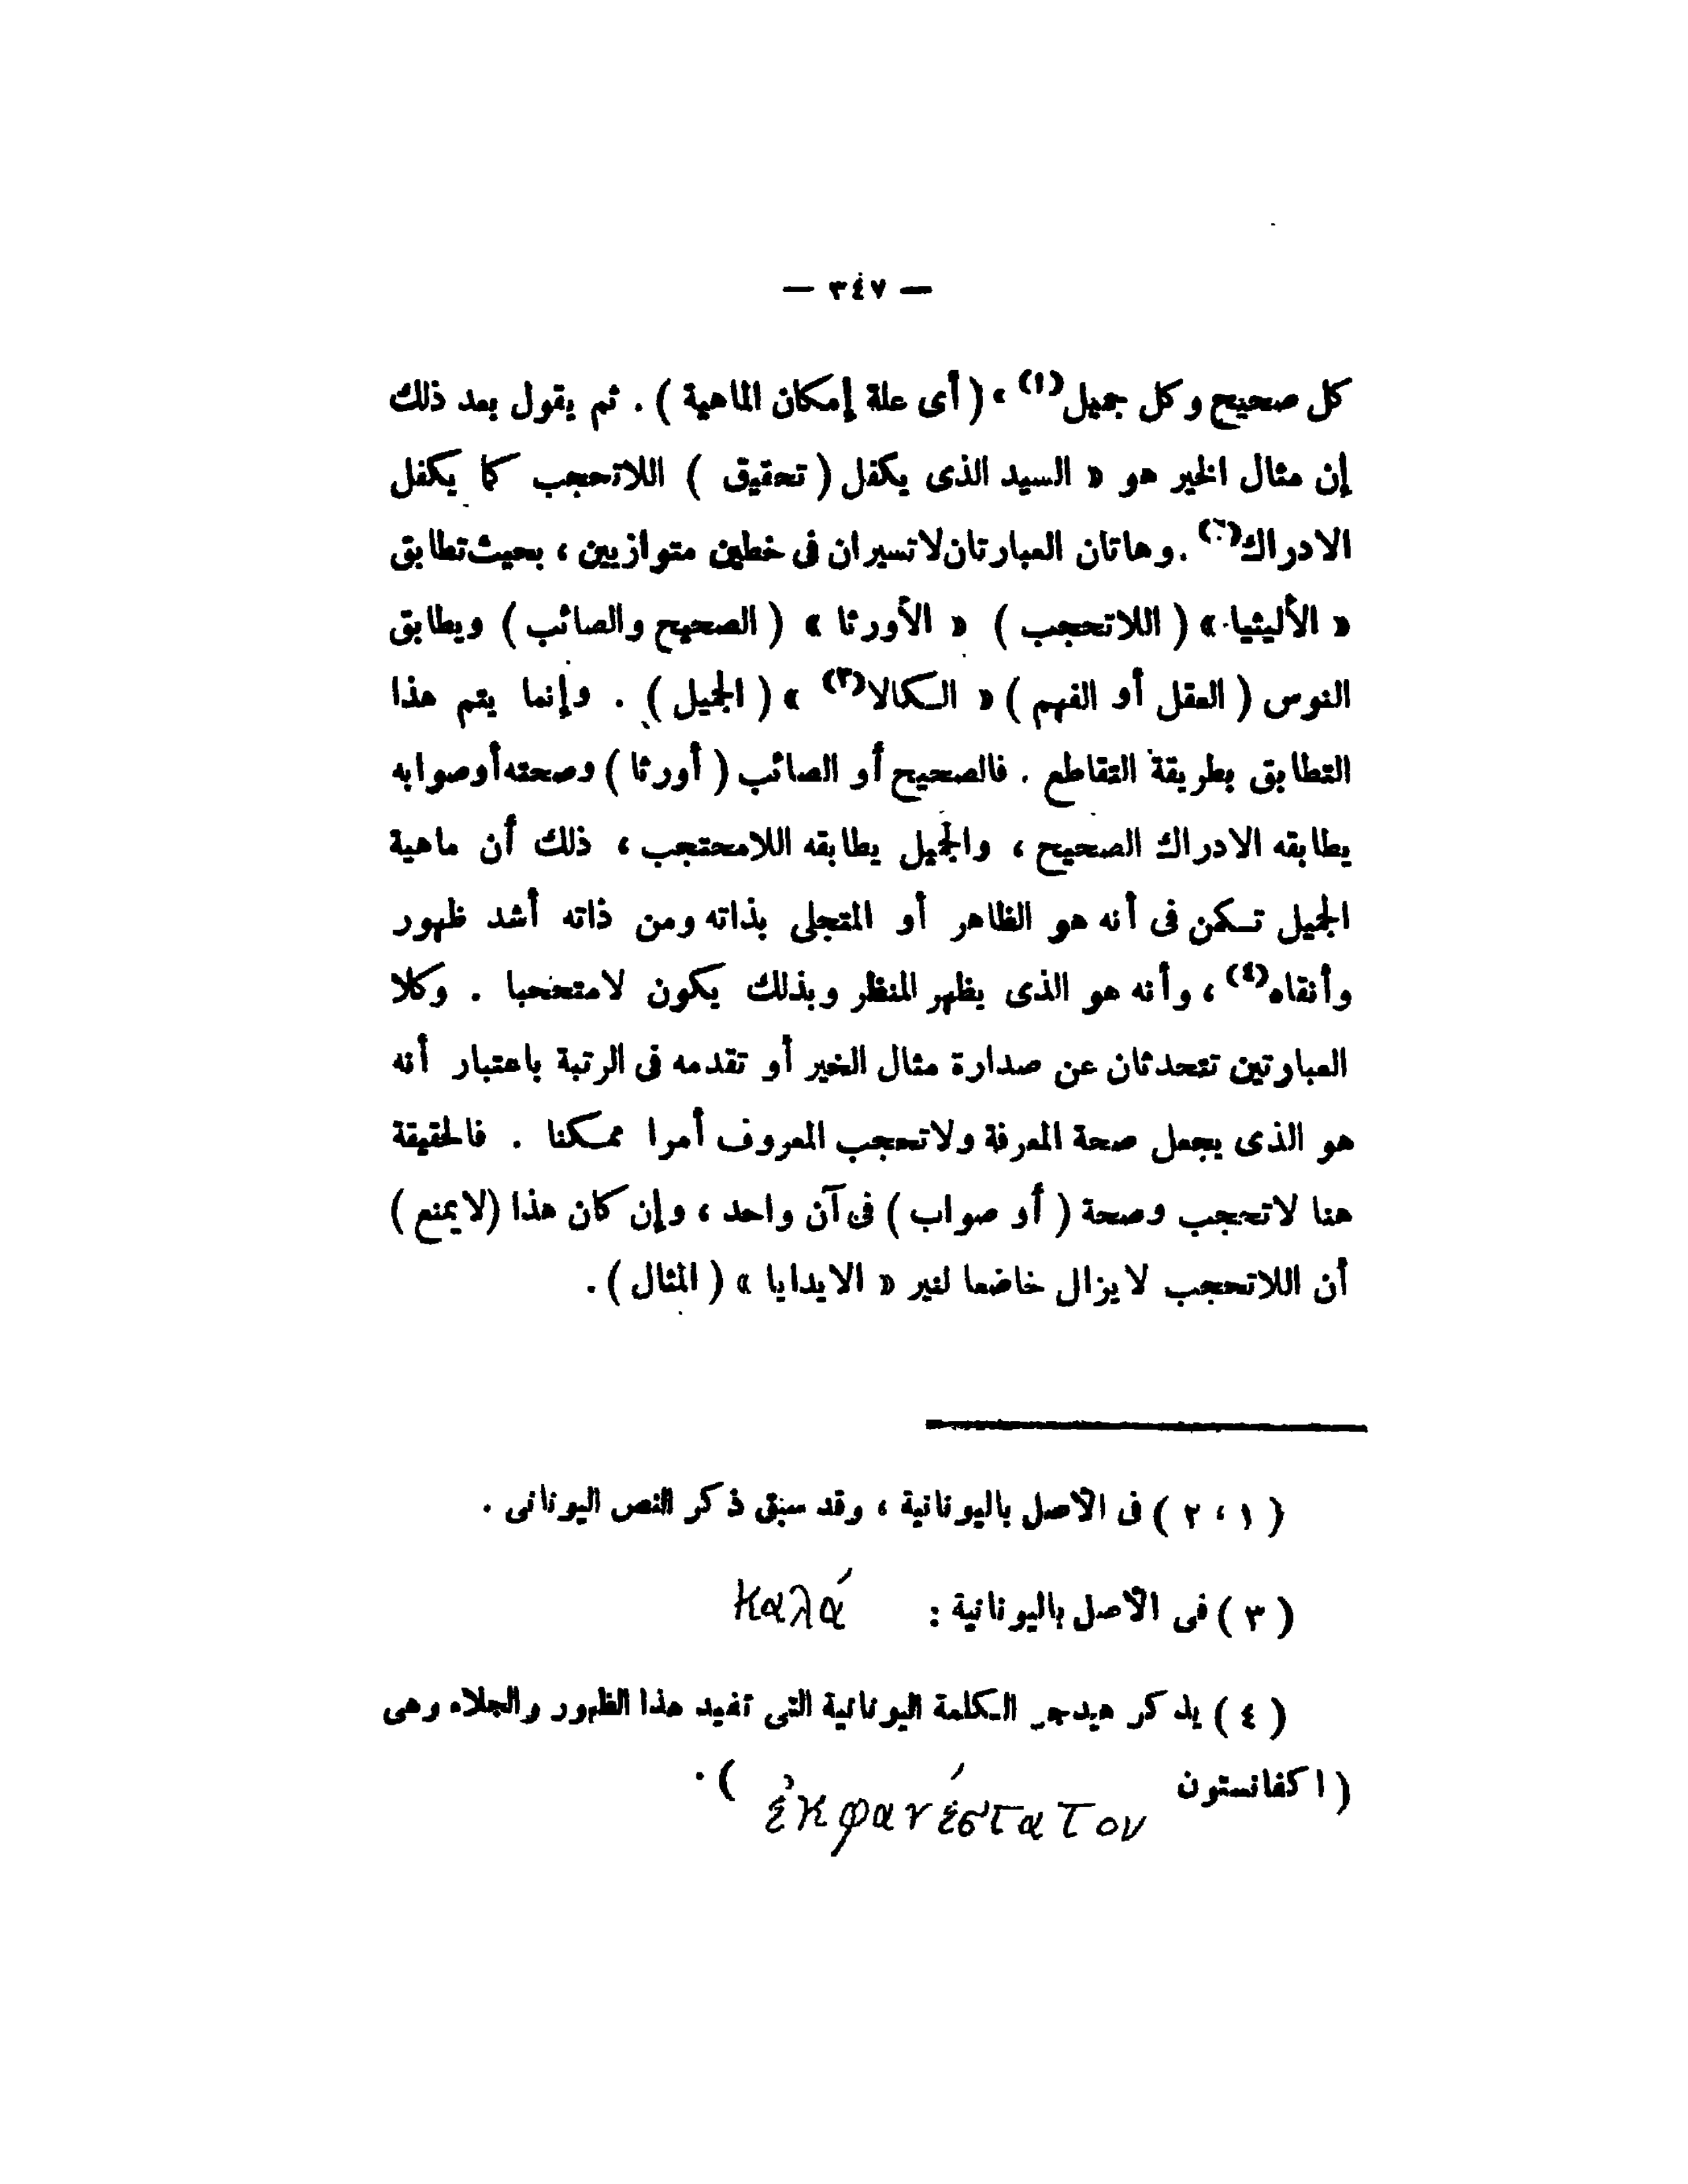 — ٣٤٧ —
كل صحيح وكل جميل(١) ، ( أى علة إمكان الماهية ) . ثم يقول بعد ذلك
إن مثال الخير هو « السيد الذى يكفل ( تحقيق ) اللاتحجب كما يكفل
الادراك(٢) . وهاتان العبارتان لا تسيران فى خطين متوازيين ، بحيث تطابق
« الأليثيا » ( اللاتحجب ) « الأورثا » ( الصحيح والصائب ) ويطابق
النوس ( العقل أو الفهم ) « الكالا(٣) » ( الجميل ) . وإنما يتم هذا
التطابق بطريقة التقاطع . فالصحيح أو الصائب ( أورثا ) وصحته أو صوابه
يطابقه الادراك الصحيح ، والجميل يطابقه اللامحتجب ، ذلك أن ماهية
الجميل تكمن فى أنه هو الظاهر أو المتجلى بذاته ومن ذاته أشد ظهور
وأنقاه(٤) ، وأنه هو الذى يظهر المنظر وبذلك يكون لامتحجبا . وكلا
العبارتين تتحدثان عن صدارة مثال الخير أو تقدمه فى الرتبة باعتبار أنه
هو الذى يجعل صحة المعرفة ولاتحجب المعروف أمرا ممكنا . فالحقيقة
هنا لاتحجب وصحة ( أو صواب ) فى آن واحد ، وإن كان هذا ( لا يمنع )
أن اللاتحجب لا يزال خاضعا لنير « الايدايا » ( المثال ) .
( ١ ، ٢ ) فى الأصل باليونانية ، وقد سبق ذكر النص اليونانى .
( ٣ ) فى الأصل باليونانية : καλά
( ٤ ) يذكر هيدجر الكلمة اليونانية التى تفيد هذا الظهور والجلاء وهى
( اكفانستون ἐκφανέστατον ) .